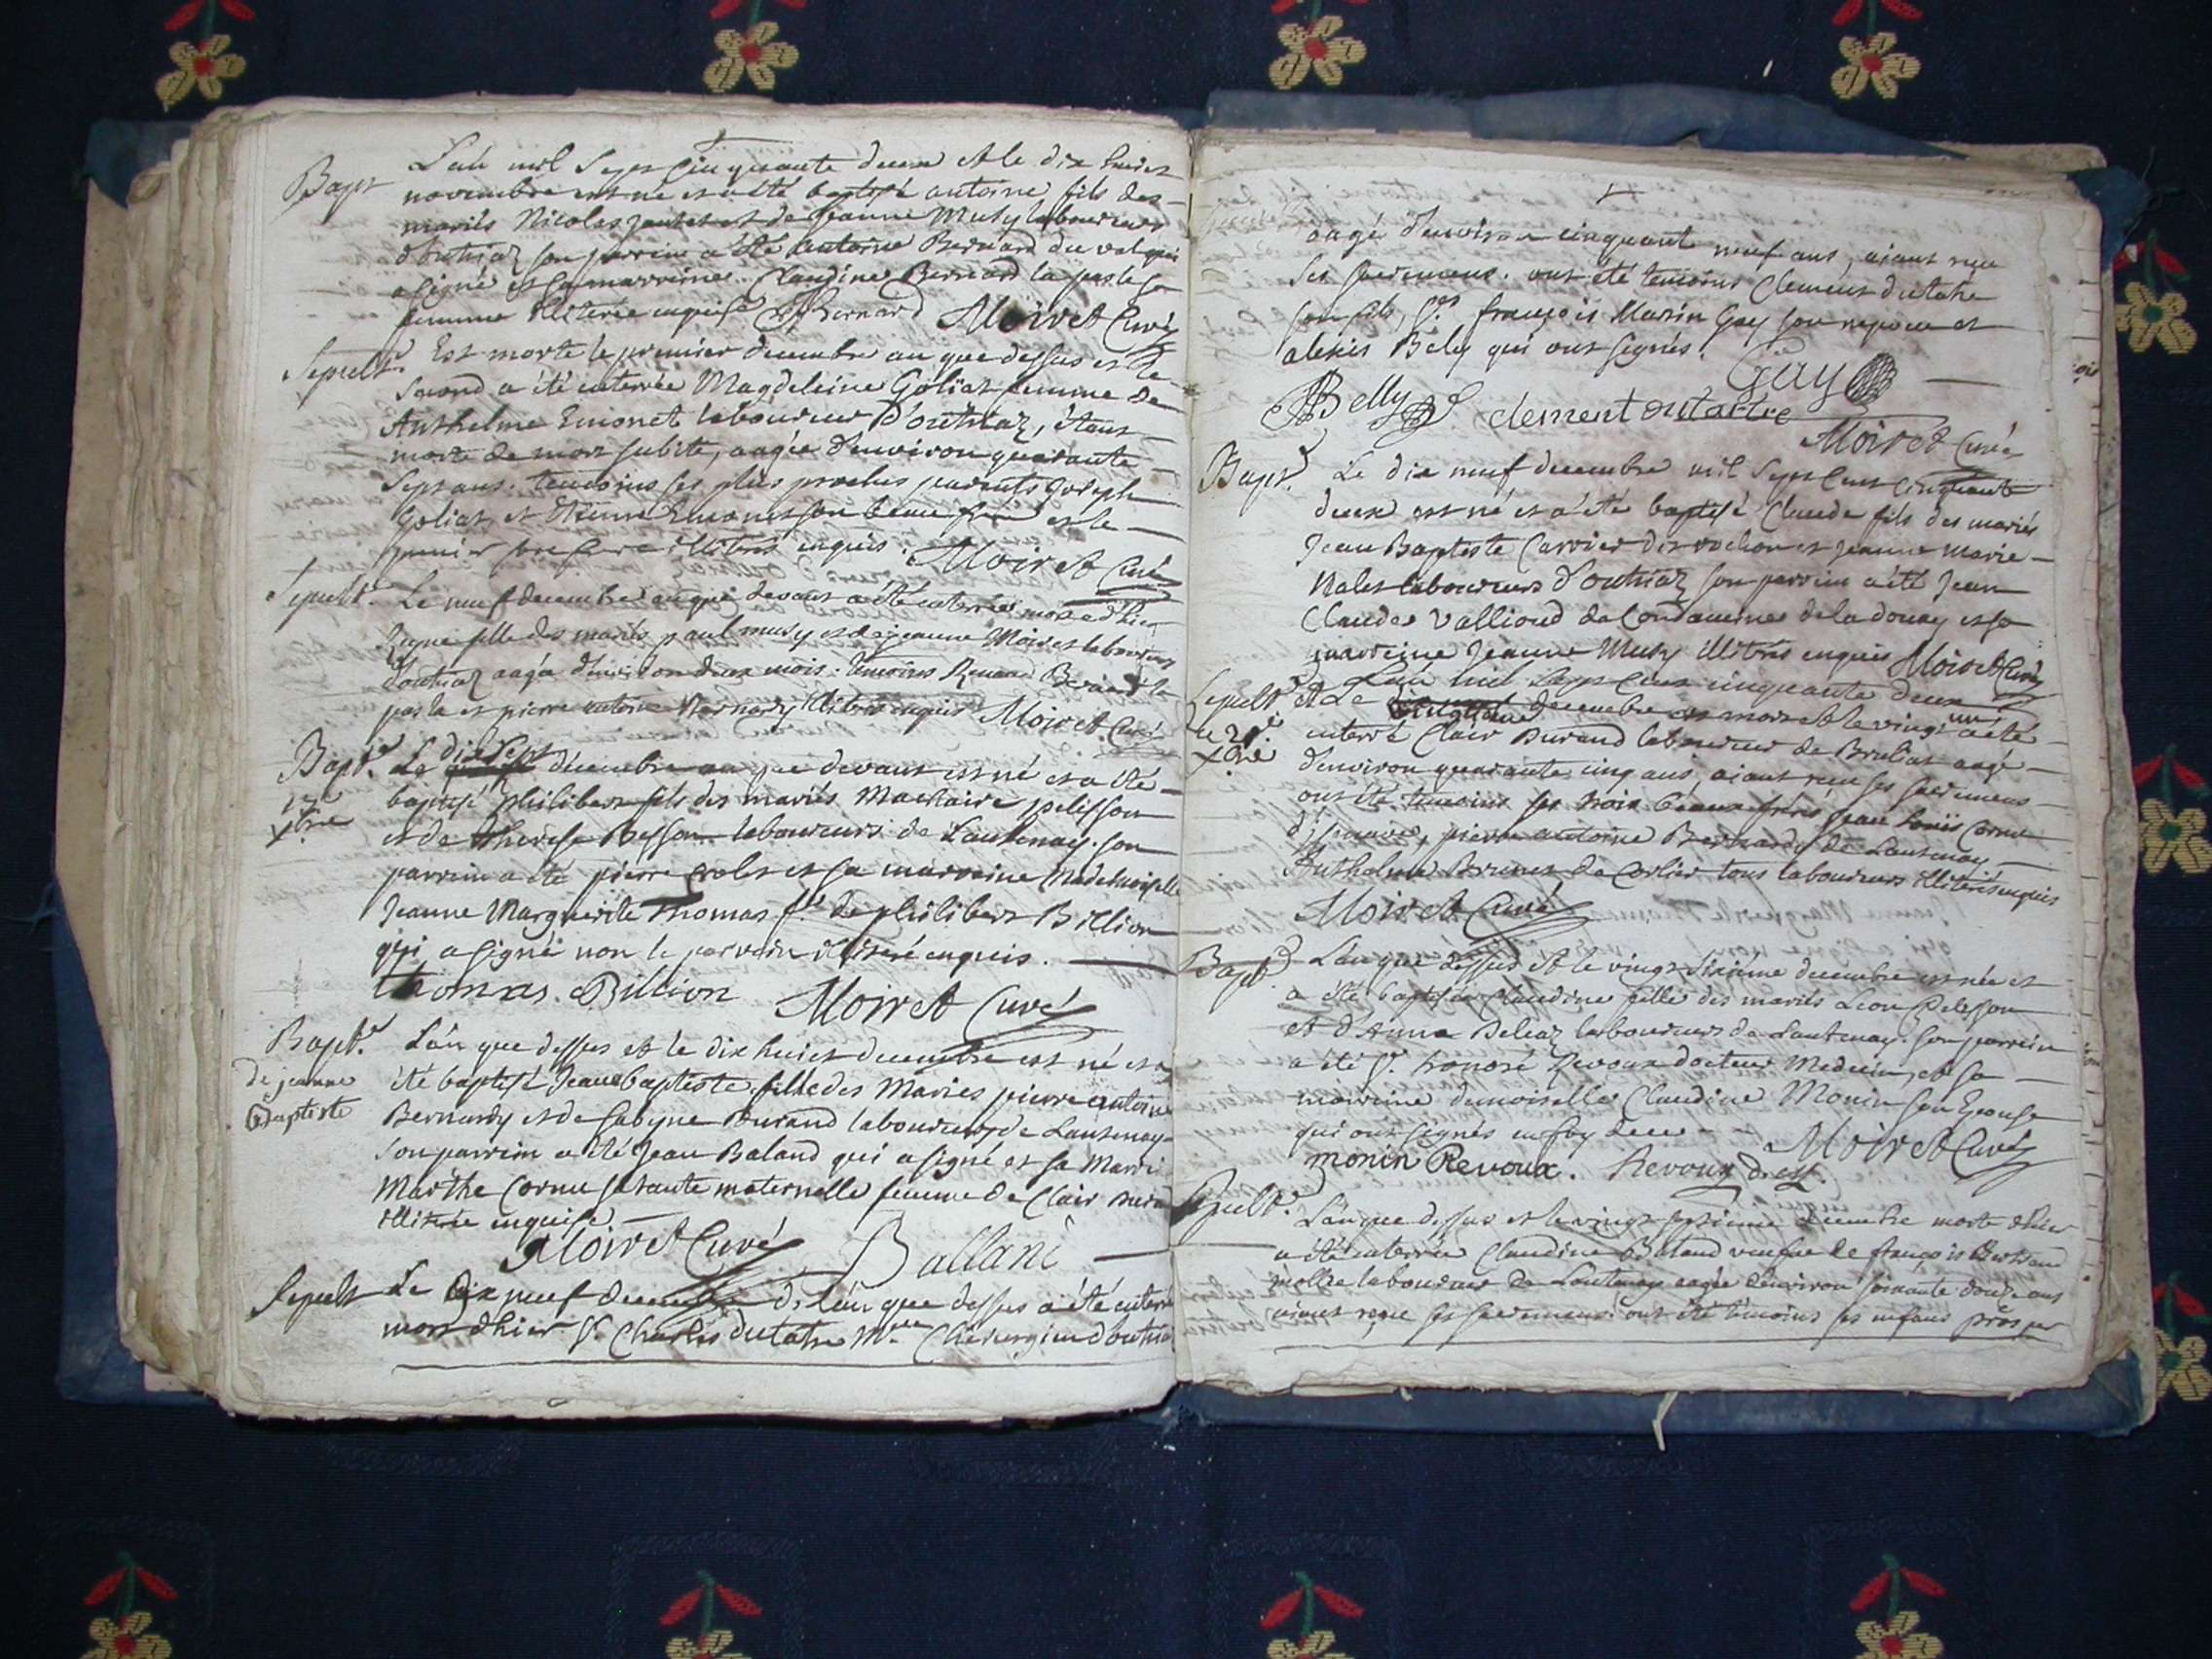 Bapt
L'an mil Sept Cinquante deux et le dix huict
novembre est né et a été baptisé antoine fils des
mariés Nicolas et de Jeanne Musy laboureurs
d'outriaz son parrein a été antoine Bernard du val qui
a signé et sa marreine Claudine Bernard la sa
femme illiterée enquise Bernard Moiret Curé
Sepult.
Est morte le premier decembre an que dessus et le
second a été enterrée Magdeleine Goliat femme de
Anthelme Emonet laboureur d'outriaz, étant
morte de mort subite, aagée d'environ quarante
Sept ans. temoins ses plus proches parents Joseph
Goliat et Etienne Emonet son beau frere et le
premier son frere illitrés enquis. Moiret Curé
Sepult.
Le neuf decembre an que devant a été enterrée morte d'hier
fille des mariés paul musy et de jeanne Moiret laboureurs
d'outriaz aagée d'environ deux mois. temoins Bernard la
et pierre antoine illitrés enquis Moiret Curé
Bapt.
17e
xbre
Le dix sept decembre an que devant est né et a été
baptisé philibert fils des mariés Machaire pelisson
et de therese Besson laboureurs de Lantenay. son
parrein a été pierre et sa marreine Mademoiselle
Jeanne Marguerite Thomas f.e de philibert Billion
qui a signé non le parrein illiteré enquis.
thomas. Billion Moiret Curé
Bapt.
de jeanne
Baptiste
L'an que dessus et le dix huict decembre est né et a
été baptisé Jeanbaptiste fille des Mariés pierre antoine
Bernardy et de Sabyne Durand laboureurs de Lantenay
Son parrein a été Jean Baland qui a signé et sa Marr
Marthe Cornu sa tante maternelle femme de Clair
illiterée enquise
Moiret Curé Ballani
Sepult
Le Dix neuf decembre de l'an que dessus a été enterré
mort d'hier S.r Charles dutatre M.tre Chirurgien d'outria
aagé d'environ cinquante neuf ans, aiant reçu
Ses sacremens. ont été temoins Clement dutatre
son fils, S.r françois Marin Gay son nepveu et
alexis Bely qui ont signés.
Gay
Belly clement dutartre
Moiret Curé
Bapt.
Le dix neuf decembre mil Sept Cent Cinquante
deux est né et a été baptisé Claude fils des mariés
Jean Baptiste Carrier dit rochon et Jeanne Marie
Nalet laboureurs d'outriaz son parrein a été Jean
Claude Vallioud de Condamine de la douay et sa
marreine Jeanne Musy illitrés enquis Moiret Curé
Sepult
Le 21e
xbre
L'an mil Sept Cent cinquante deux
et Le decembre est mort et le vingt un a été
enterré Clair Durand laboureur de Bruliat aagé
d'environ quarante cinq ans, aiant reçu ses sacremens
ont été temoins ses trois beaux freres Jean Louis Cornu
pierre antoine Bernardy de Lantenay
Anthelme Brunet de Corlier tous laboureurs illiterés enquis
Moiret Curé
Bapt.
L'an que dessus et le vingt sixième decembre est née et
a été baptisée Claudine fille des mariés Leon Pelisson
et d'Anne Beleaz laboureurs de Lantenay. son parrein
a été S.r honoré Revoux docteur Medecin, et sa
marreine demoiselle Claudine Monin son Epouse
qui ont signés en foy de ce Moiret Curé
monin Revoux. Revoux
Sepult.
L'an que dessus et le vingt decembre morte d'hier
a été enterrée Claudine Baland veufve de françois Bertrand
laboureur de Lantenay aagée d'environ soixante douze ans
aiant reçue ses sacremens. ont été temoins ses enfans